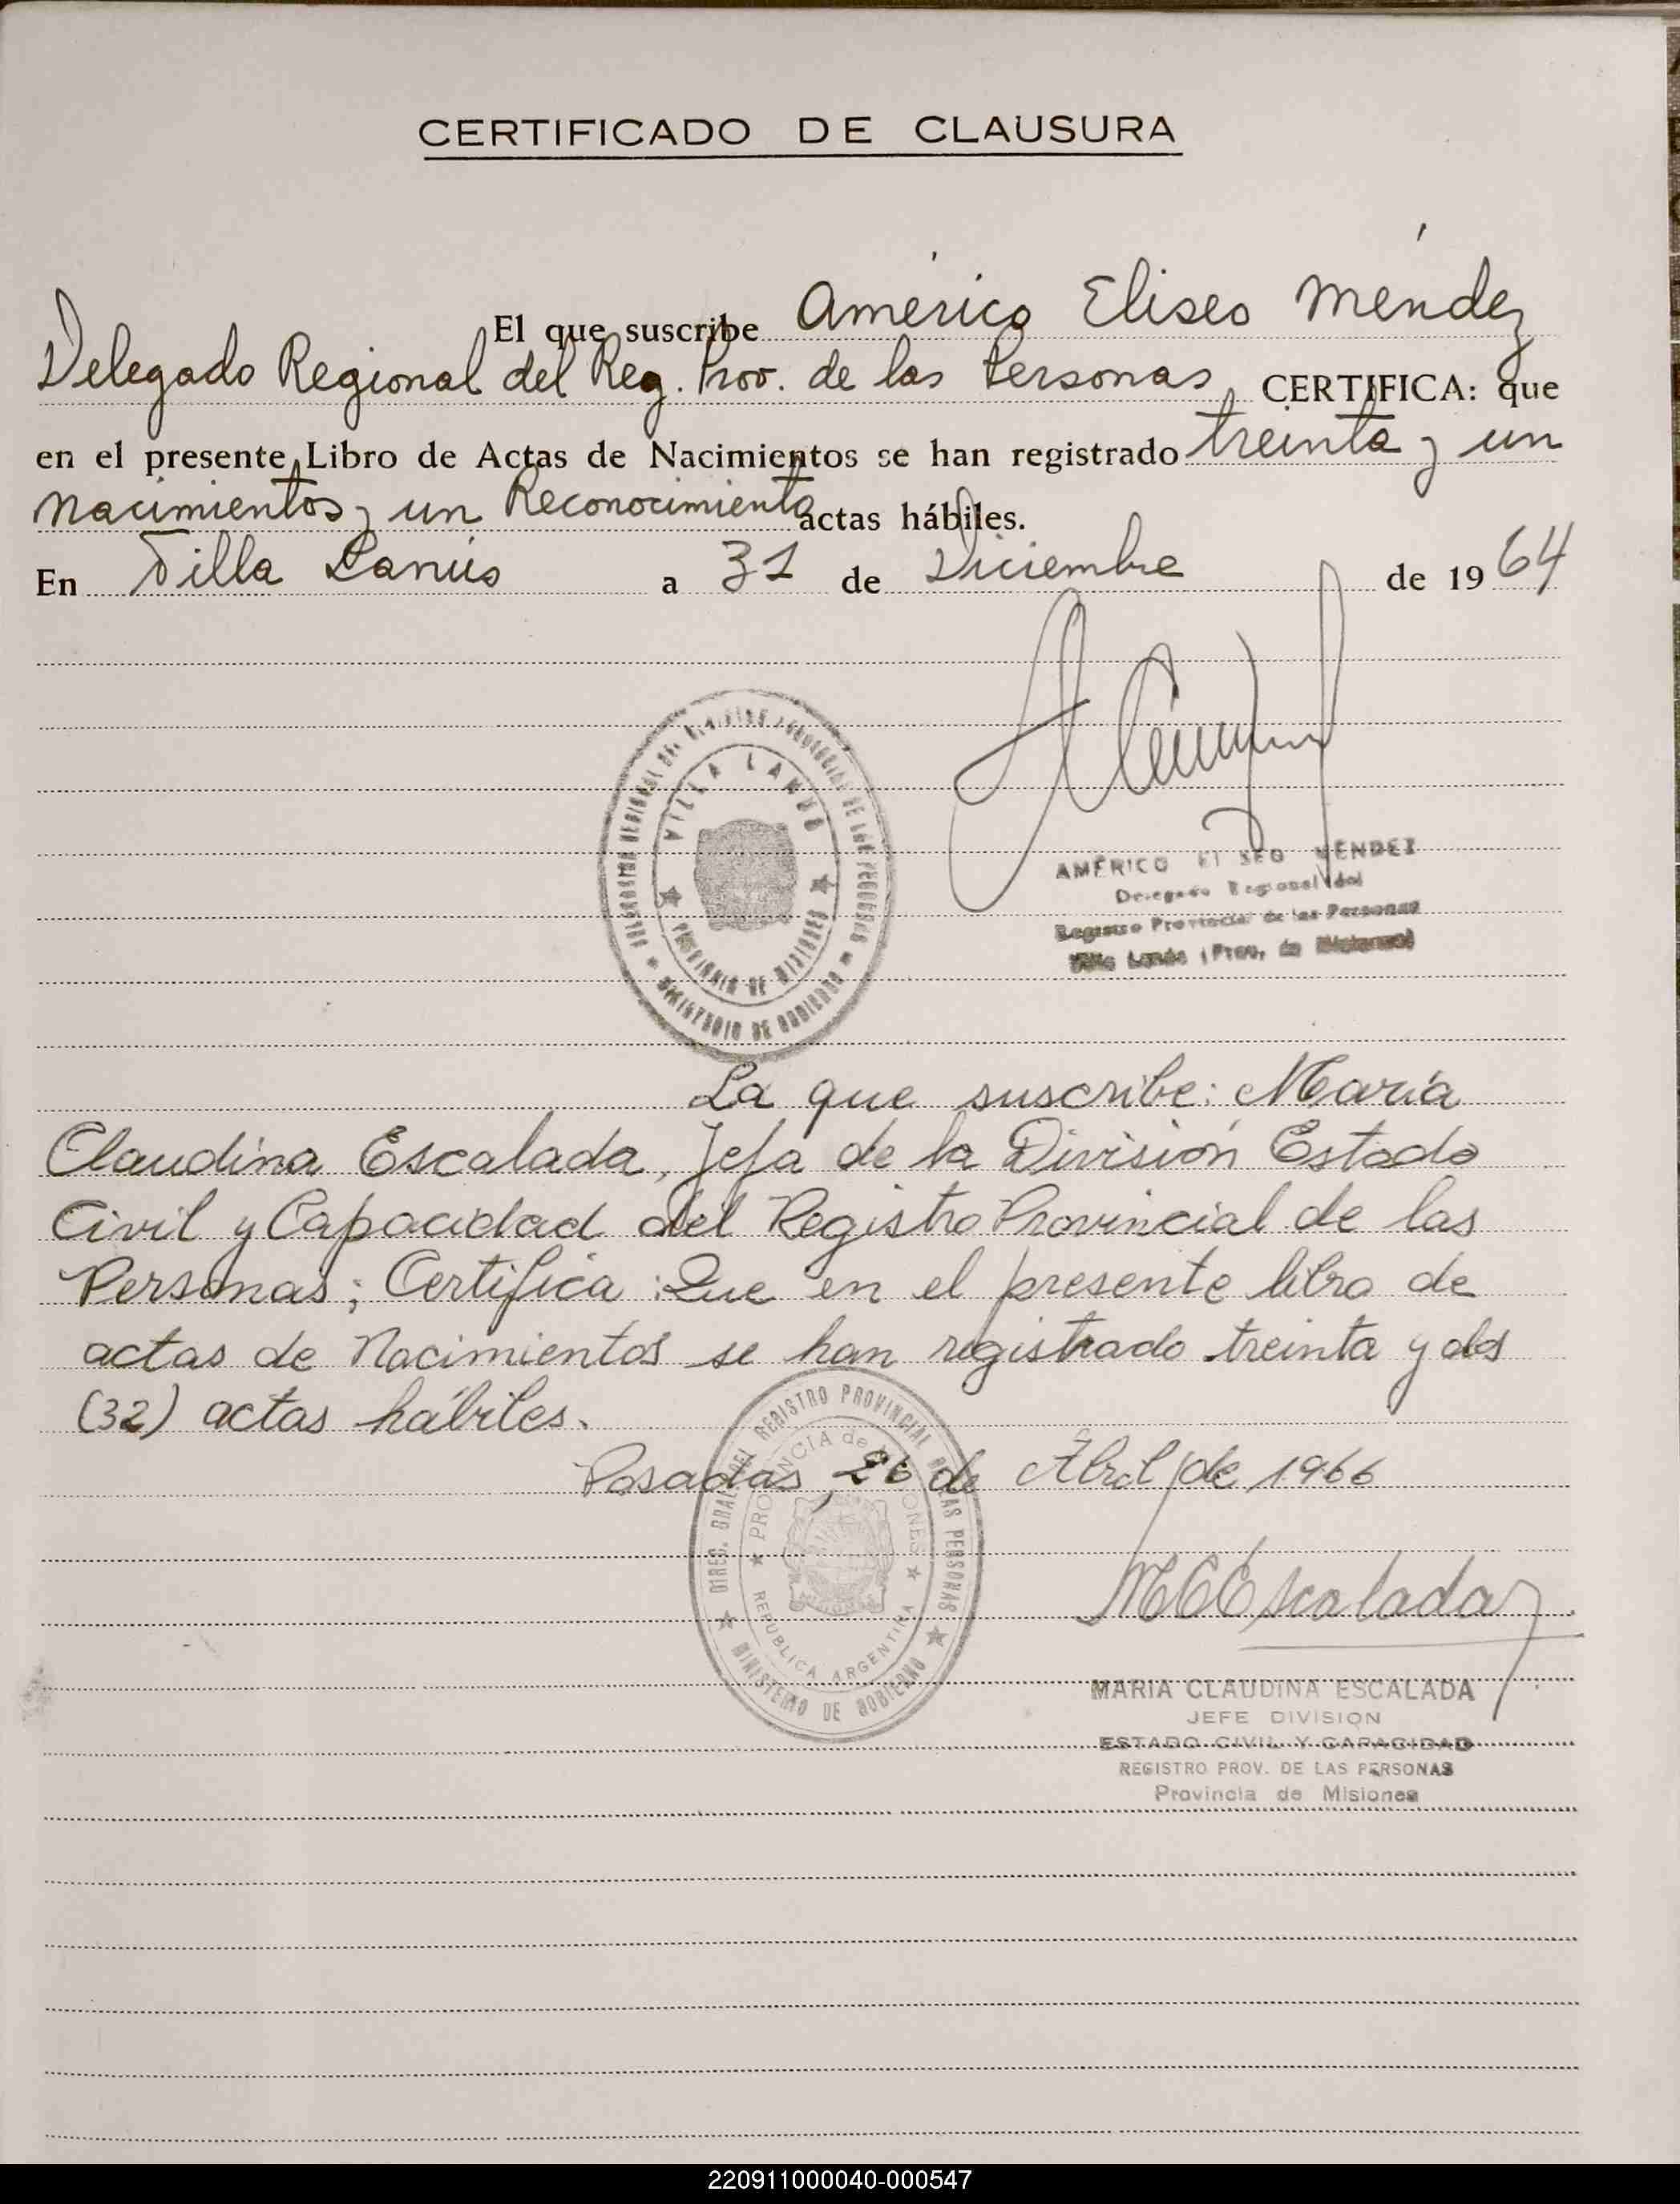 CERTIFICADO DE CLAUSURA
El que suscribe Américo Eliseo Méndez
Delegado Regional del Reg. Prov. de las Personas, CERTIFICA: que
en el presente Libro de Actas de Nacimientos se han registrado treinta y un
nacimientos y un Reconocimiento actas hábiles.
En Villa Lanús a 31 de Diciembre de 1964
VILLA LANUS
PROVINCIA DE MISIONES
MINISTERIO DE GOBIERNO
AMÉRICO ELISEO MÉNDEZ
Delegado Regional del
Registro Provincial de las Personas
Villa Lanús (Prov. de Misiones)
La que suscribe: María
Claudina Escalada, Jefa de la División Estado
Civil y Capacidad del Registro Provincial de las
Personas; Certifica: Que en el presente libro de
actas de Nacimientos se han registrado treinta y dos
(32) actas hábiles.
Posadas, 26 de Abril de 1966
DIREC. GRAL. DEL REGISTRO PROVINCIAL DE LAS PERSONAS
PROVINCIA de MISIONES
REPUBLICA ARGENTINA
MINISTERIO DE GOBIERNO
MCEscalada
MARIA CLAUDINA ESCALADA
JEFE DIVISION
ESTADO CIVIL Y CAPACIDAD
REGISTRO PROV. DE LAS PERSONAS
Provincia de Misiones
220911000040-000547